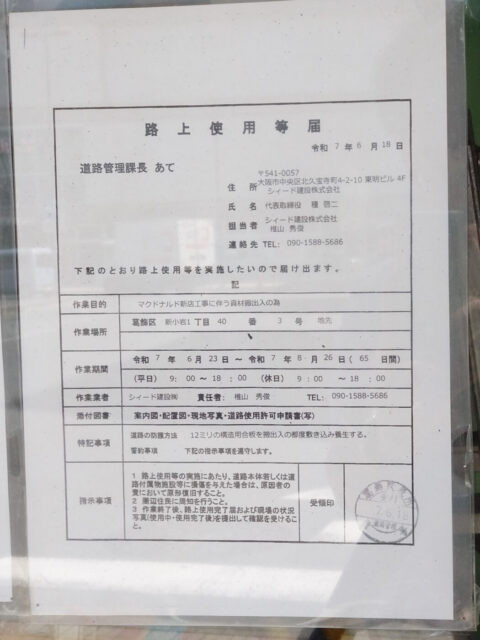 路上使用等届
令和 7 年 6 月 18 日
道路管理課長 あて
〒541-0057
住 所 大阪市中央区北久宝寺町4-2-10 東明ビル 4F
シィード建設株式会社
氏 名 代表取締役 種 啓二
担当者 シィード建設株式会社
椎山 秀俊
連絡先 TEL: 090-1588-5686
下記のとおり路上使用等を実施したいので届け出ます。
記
作業目的 マクドナルド新店工事に伴う資材搬出入の為
作業場所 葛飾区 新小岩1丁目 40 番 3 号 地先
作業期間 令和 7 年 6 月 23 日 ～ 令和 7 年 8 月 26 日 ( 65 日間)
(平日) 9: 00 ～ 18 : 00 (休日) 9 : 00 ～ 18 : 00
作業業者 シィード建設㈱ 責任者: 椎山 秀俊 TEL: 090-1588-5686
添付図書 案内図・配置図・現地写真・道路使用許可申請書(写)
特記事項 道路の防護方法 12ミリの構造用合板を搬出入の都度敷き込み養生する。
誓約事項 下記の指示事項を遵守します。
指示事項 1 路上使用等の実施にあたり、道路本体若しくは道
路付属物施設等に損傷を与えた場合は、原因者の
責において原形復旧すること。
2 周辺住民に周知を行うこと。
3 作業終了後、路上使用完了届および現場の状況
写真(使用中・使用完了後)を提出して確認を受けるこ
と。
受領印